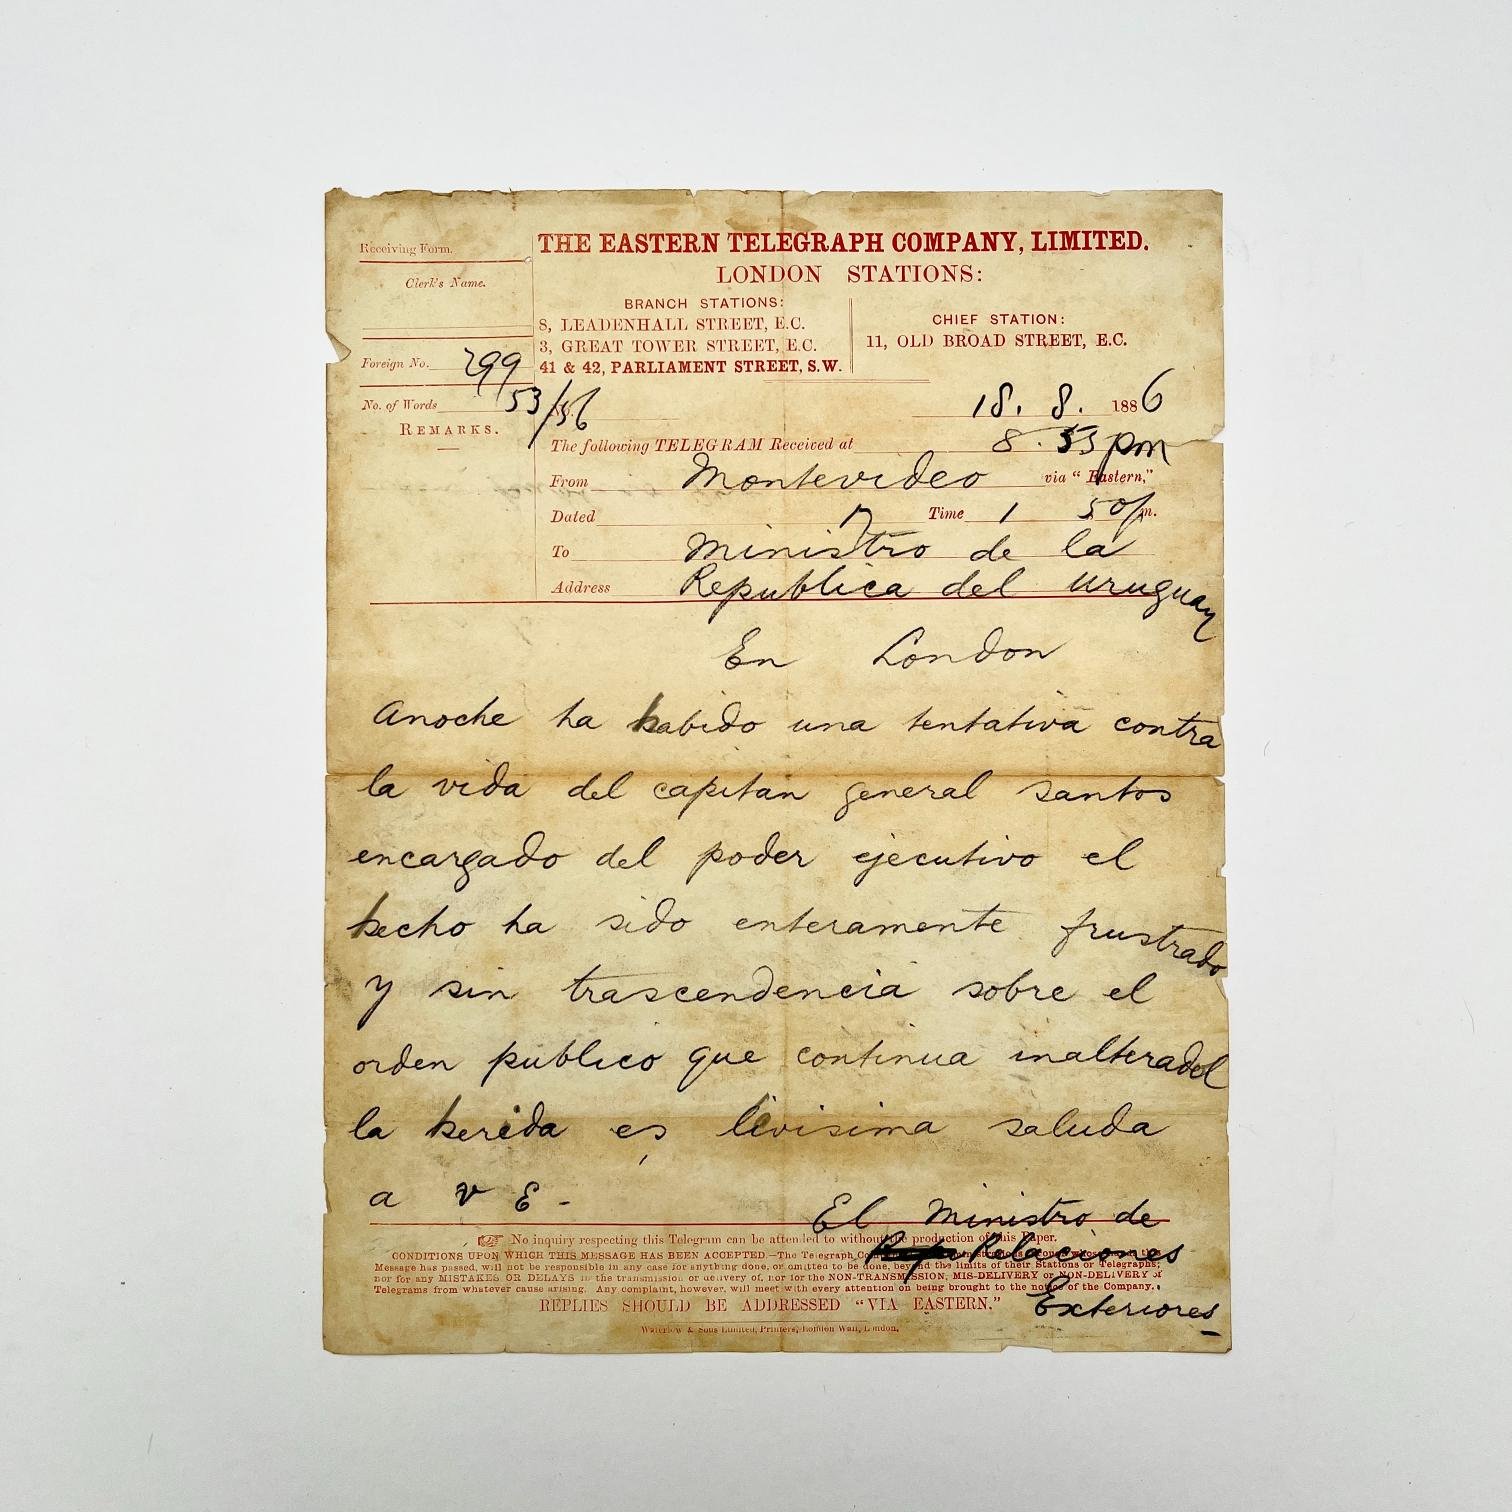 Receiving Form.
Clerk's Name.
Foreign No. 299
No. of Words 53/56
REMARKS.
THE EASTERN TELEGRAPH COMPANY, LIMITED.
LONDON STATIONS:
BRANCH STATIONS:
8, LEADENHALL STREET, E.C.
3, GREAT TOWER STREET, E.C.
41 & 42, PARLIAMENT STREET, S.W.
CHIEF STATION:
11, OLD BROAD STREET, E.C.
No.
18. 8. 1886
The following TELEGRAM Received at 8.53 pm
From Montevideo via "Eastern,"
Dated 17 Time 1 50 p.m.
To Ministro de la
Address Republica del Uruguay
En London
Anoche ha habido una tentativa contra
la vida del capitan general santos
encargado del poder ejecutivo el
hecho ha sido enteramente frustrado
y sin trascendencia sobre el
orden publico que continua inalterado
la herida es levisima saluda
a V E -
El Ministro de
Relaciones
Exteriores
No inquiry respecting this Telegram can be attended to without the production of this Paper.
CONDITIONS UPON WHICH THIS MESSAGE HAS BEEN ACCEPTED.—The Telegraph
Message has passed, will not be responsible in any case for anything done, or omitted to be done, beyond the limits of their Stations or Telegraphs;
nor for any MISTAKES OR DELAYS in the transmission or delivery of, nor for the NON-TRANSMISSION, MIS-DELIVERY or NON-DELIVERY of
Telegrams from whatever cause arising. Any complaint, however, will meet with every attention on being brought to the notice of the Company.
REPLIES SHOULD BE ADDRESSED "VIA EASTERN."
Waterlow & Sons Limited, Printers, London Wall, London.